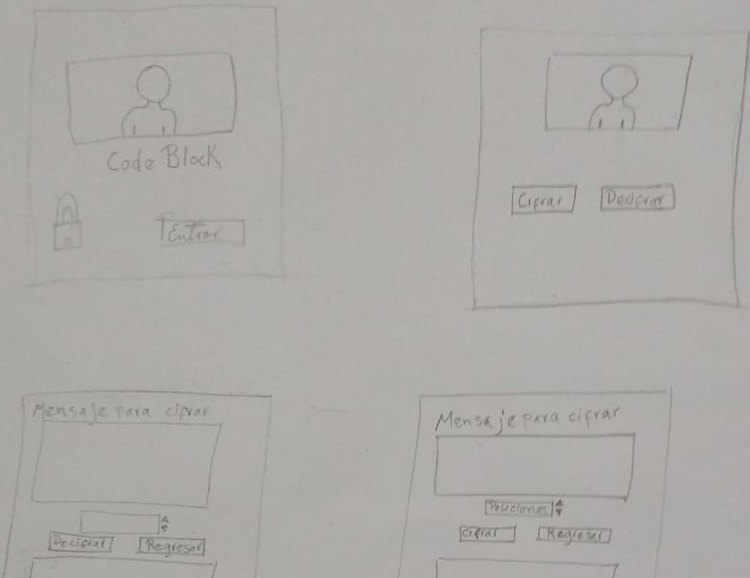 Code Block
Entrar
Cifrar Decifrar
Mensaje para cifrar
Decifrar Regresar
Mensaje para cifrar
Posiciones
Cifrar Regresar